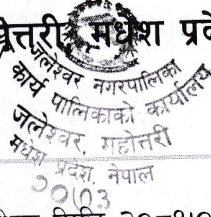 त्तरी, मधेश प्रदे
जलेश्वर नगरपालिका
कार्य पालिकाको कार्यालय
जलेश्वर, महोत्तरी
मधेश प्रदेश, नेपाल
२०७३